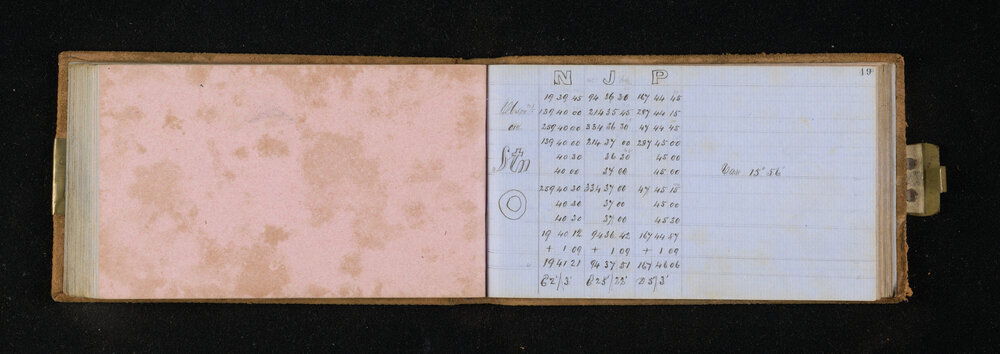 19
N J P
19 39 45 94 36 30 167 44 45
Observd. 139 40 00 214 35 45 287 44 15
on 259 40 00 334 36 30 47 44 45
139 40 00 214 37 00 287 45 00
Stn 40 30 36 30 45 00
40 00 37 00 45 00
259 40 30 334 37 00 47 45 15
40 30 37 00 45 00
40 30 37 00 45 30
19 40 12 94 36 42 167 44 57
+ 1 09 + 1 09 + 1 09
19 41 21 94 37 51 167 46 06
15° 56'